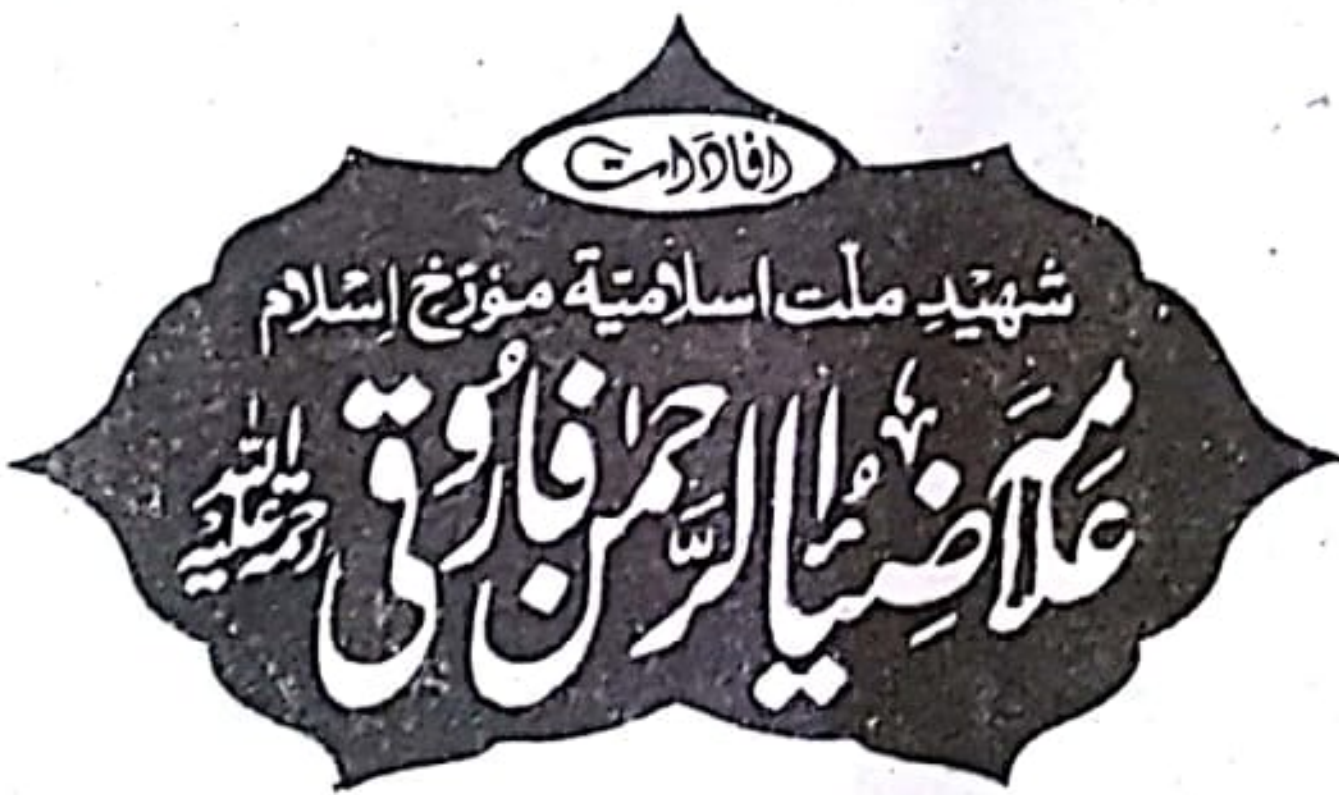 افادات
شہیدِ ملت اسلامیۃ مؤرّخ اِسْلام
علامہ ضیاءُ الرَّحمٰن فارُوقی رحمۃ اللہ علیہ